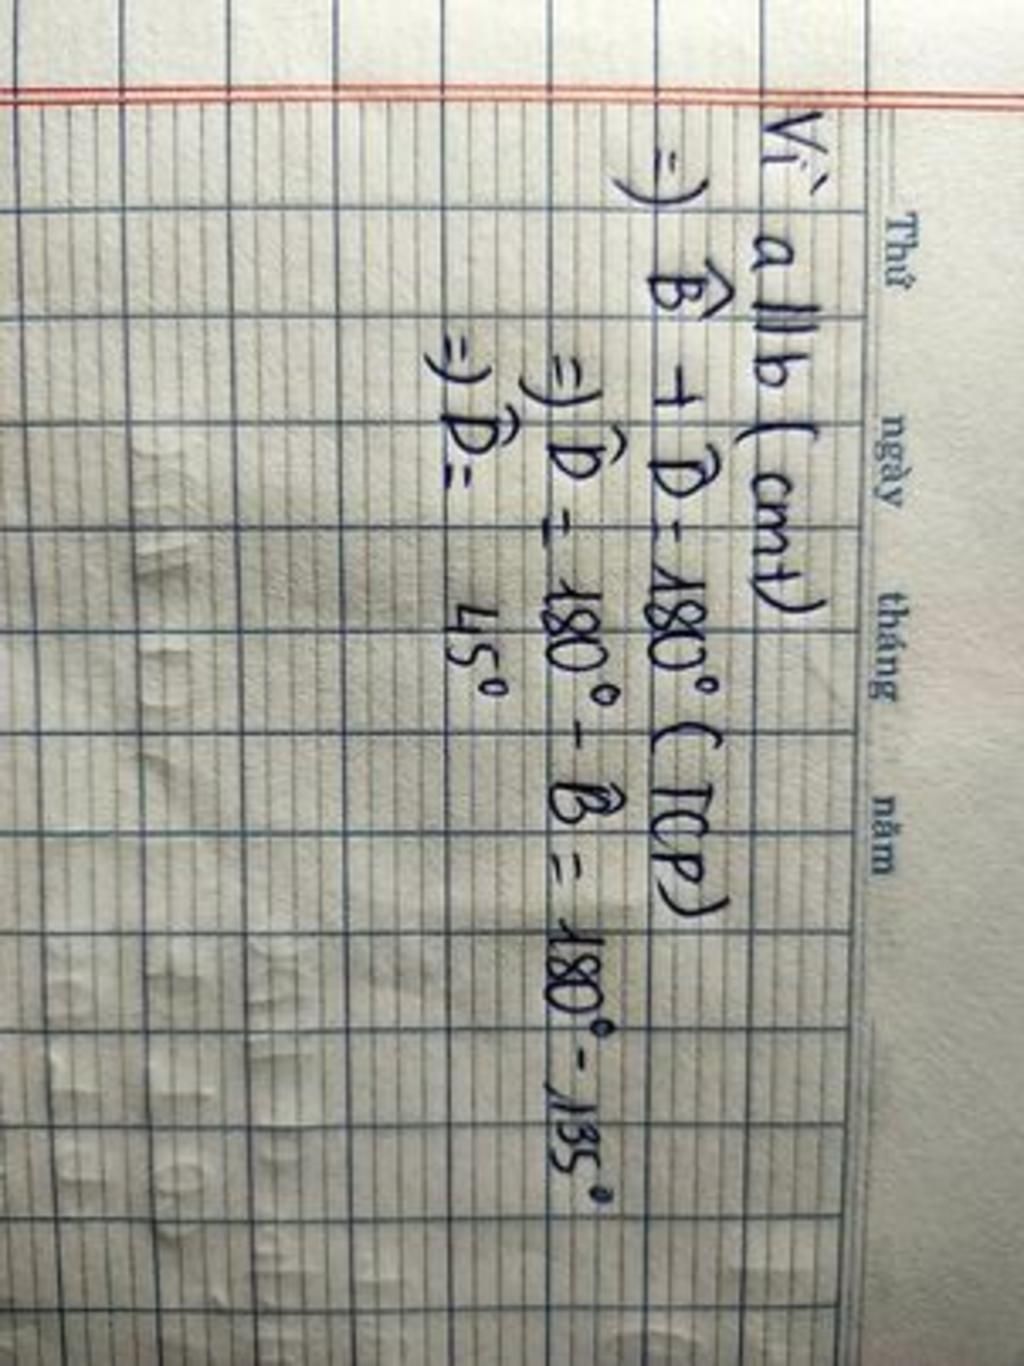 Thứ ngày tháng năm
Vì a // b (cmt)
=) B̂ + D̂ = 180° (TCP)
=) D̂ = 180° - B̂ = 180° - 135°
=) D̂ = 45°